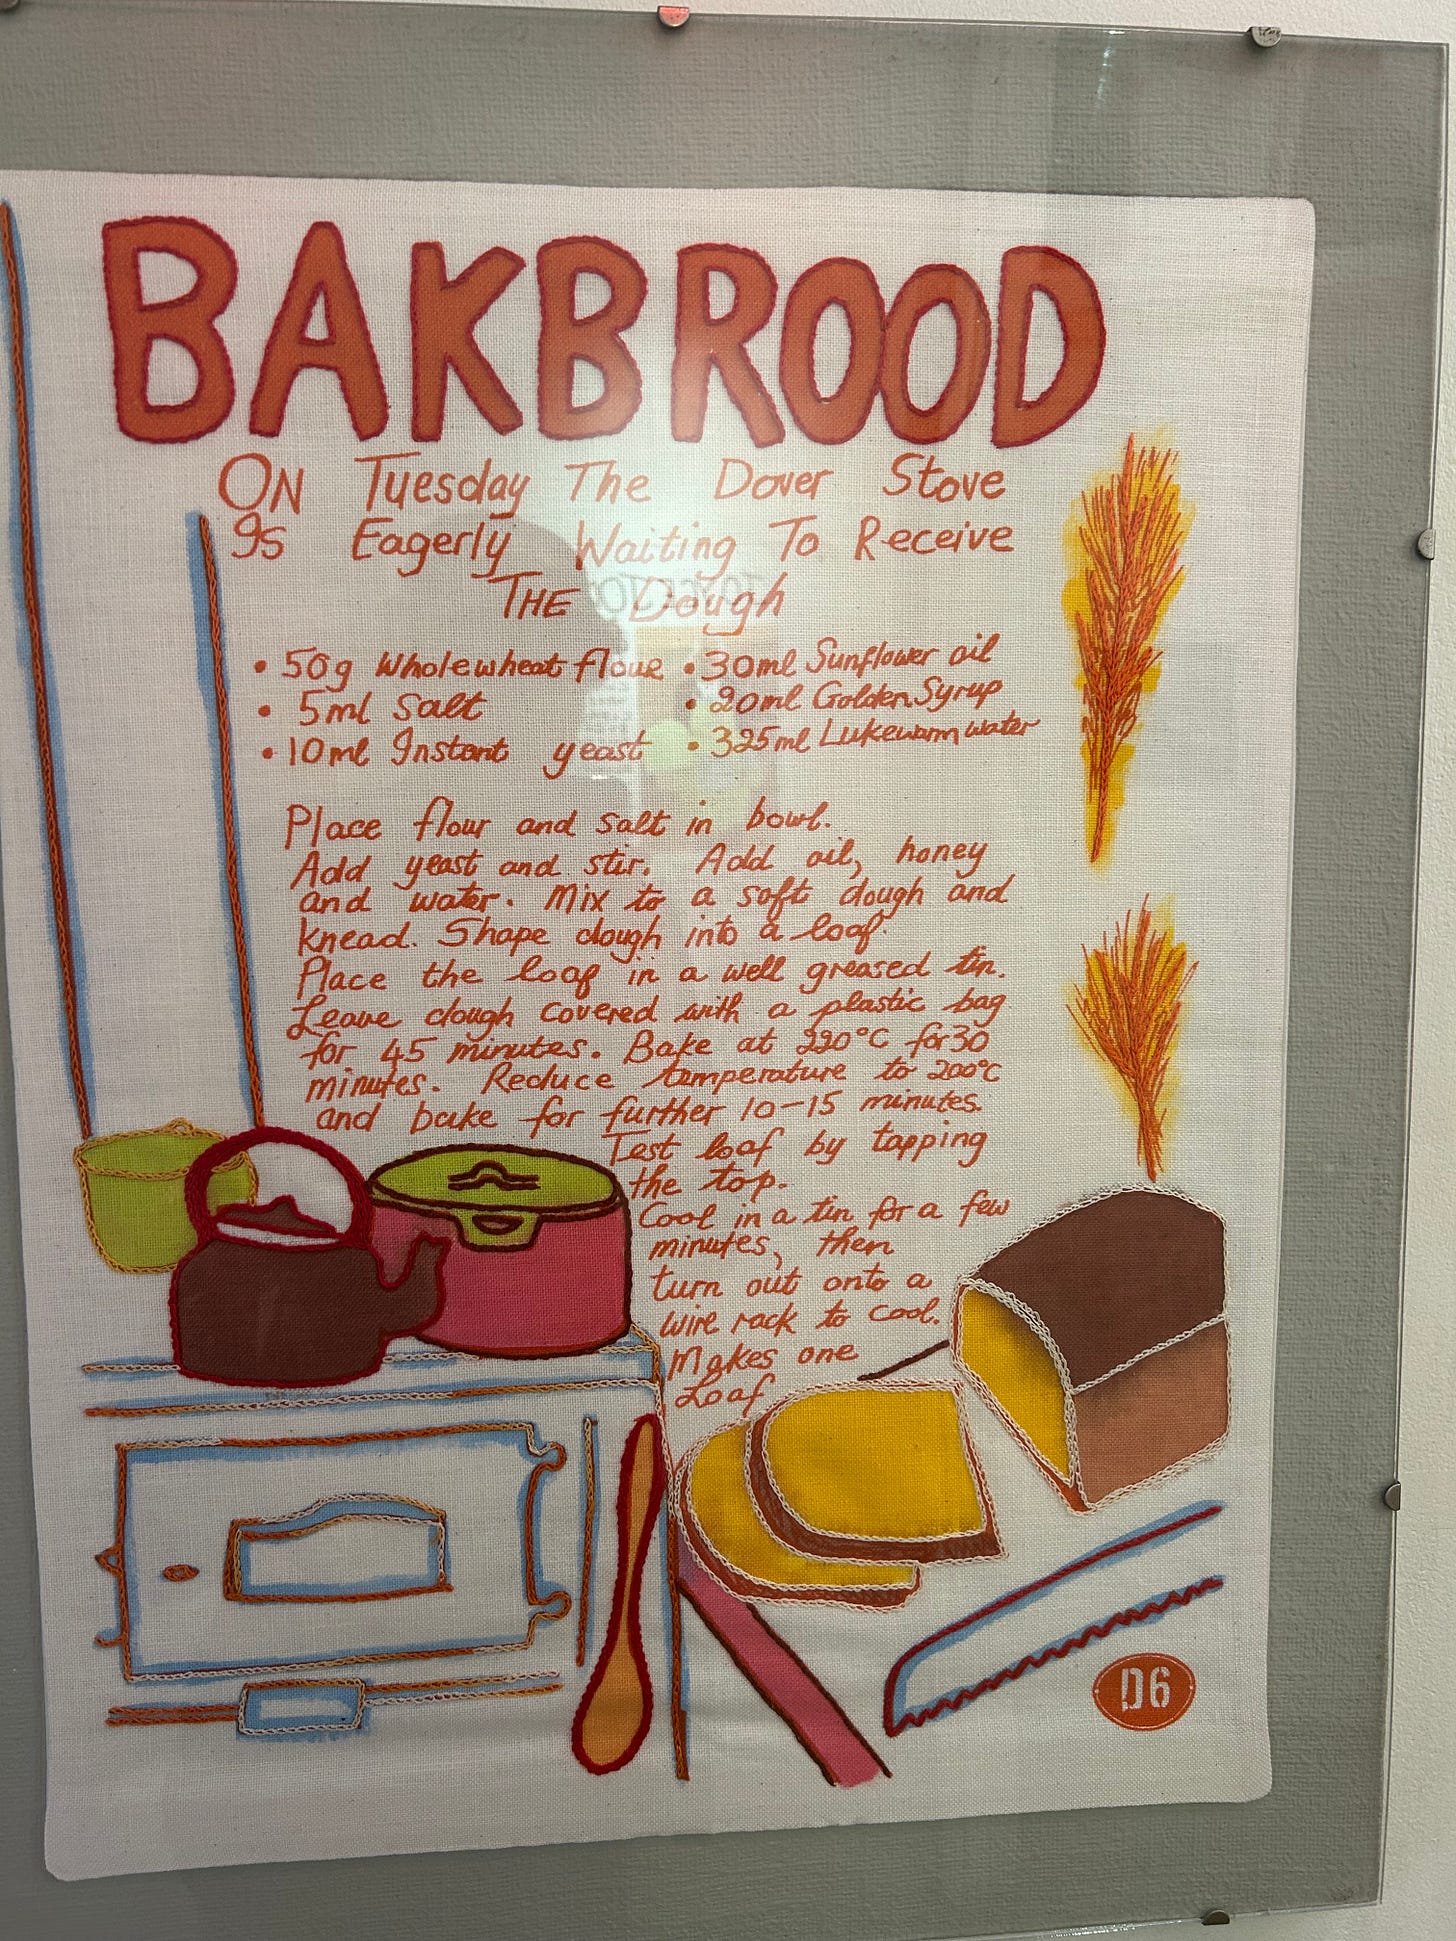 BAKBROOD
ON Tuesday The Dover Stove
Is Eagerly Waiting To Receive
THE Dough
• 50g Wholewheat flour • 30ml Sunflower oil
• 5ml Salt • 20ml Golden Syrup
• 10ml Instant yeast • 325ml Lukewarm water
Place flour and salt in bowl.
Add yeast and stir. Add oil, honey
and water. Mix to a soft dough and
knead. Shape dough into a loaf.
Place the loaf in a well greased tin.
Leave dough covered with a plastic bag
for 45 minutes. Bake at 220°C for 30
minutes. Reduce temperature to 200°C
and bake for further 10-15 minutes.
Test loaf by tapping
the top.
Cool in a tin for a few
minutes, then
turn out onto a
wire rack to cool.
Makes one
Loaf
D6